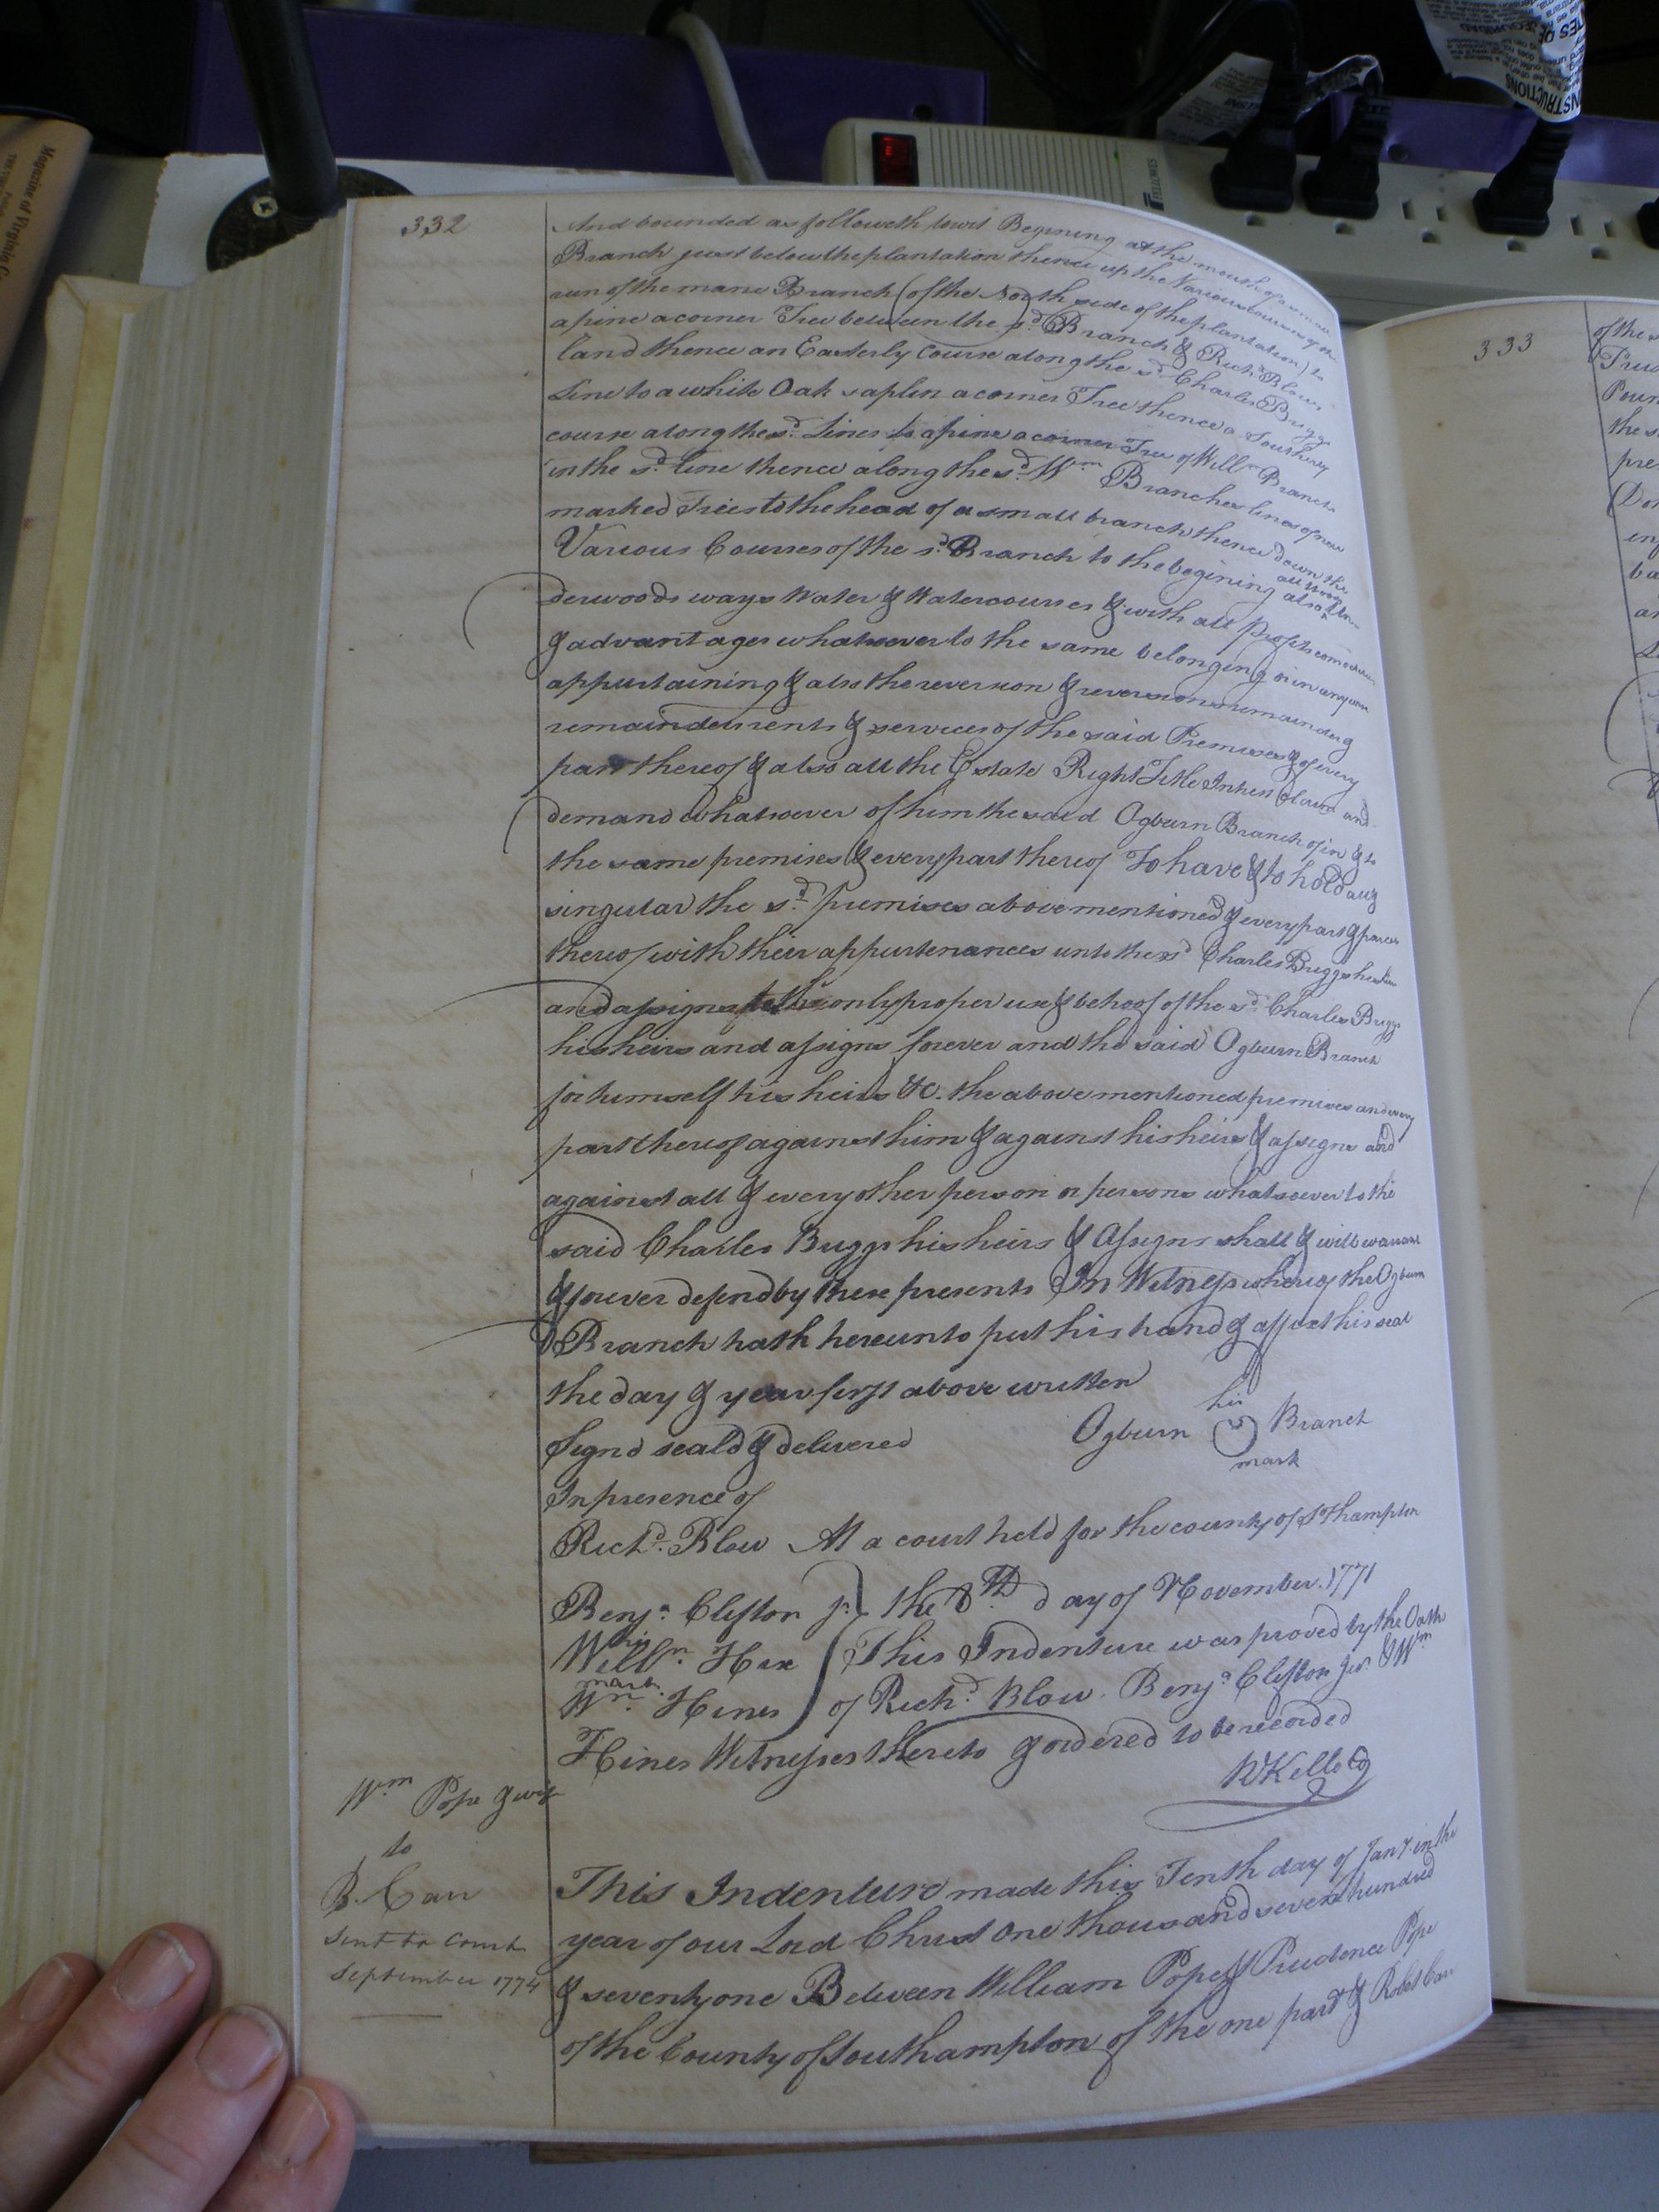 332
And bounded as followeth towit Begining at the mouth of a small
Branch just below the plantation thence up the Various courses of the
run of the mane Branch (of the North side of the plantation) to
a pine a corner Tree between the sd. Branch & Richd Blows
land thence an Easterly Course along the sd. Charles Briggs
Line to a white Oak saplin a corner Tree thence a Southerly
course along the sd. Lines to a pine a corner Tree of Willm Branch
in the sd. line thence along the sd. Wm Branches lines of new
marked Trees to the head of a small branch thence down the
Various Courses of the sd. Branch to the begining also
derwoods ways Water & Watercourses & with all Profits
& advantages whatsoever to the same belonging or in any
appurtaining & also the reversion & reversions remainder &
remainders rents & services of the said Premises & of every
part thereof & also all the Estate Right Title Intrest Claim and
demand whatsoever of him the said Ogburn Branch of in & to
the same premises & every part thereof To have & to hold all &
singular the sd. premises above mentioned & every part & parcel
thereof with their appurtenances unto the sd Charles Briggs his heirs
and assigns to the only proper use & behoof of the sd. Charles Briggs
his heirs and assigns forever and the said Ogburn Branch
for himself his heirs &c. the above mentioned premises and every
part thereof against him & against his heirs & assigns and
against all & every other person or persons whatsoever to the
said Charles Briggs his heirs & Assigns shall & will warant
& forever defend by these presents In Witness whereof the Ogburn
Branch hath hereunto put his hand & affixt his seal
the day & year first above written
his
Signd seald & delivered Ogburn Branch
mark
In presence of
Richd. Blow At a court held for the county of So thampton
Benja. Clifton jr. the 8th. day of November. 1771
his
Willm. Hix This Indenture was proved by the Oath
mark
Wm. Hines of Richd. Blow. Benja. Clifton jur. & Wm
Hines Witnesses thereto & ordered to be recorded
Wm Pope & wife
to
This Indenture made this Tenth day of Jany. in the
year of our Lord Christ one thousand seven hundred
Sent to Court
September 1774
& seventy one Between William Pope & Prudence Pope
of the County of Southampton of the one part & Robert Carr
333
of the
the s
pre
FELLOWES
INSTRUCTIONS
Magazine of Virginia